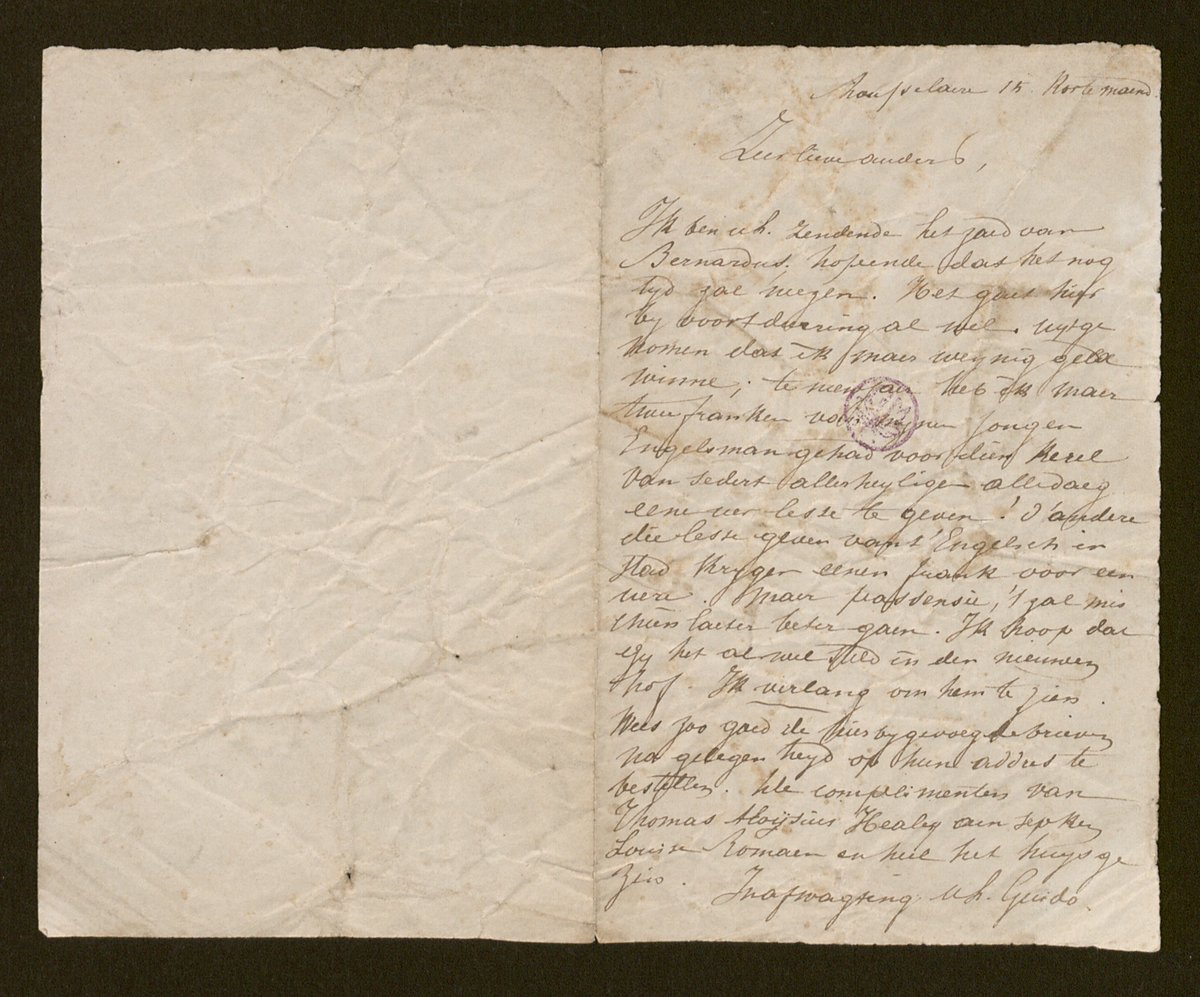 Rousselaere 15. Korte maend
Zeer lieve ouders,
Ik ben u h. zendende het zaed van
Bernardus. hopende dat het nog
tyd zal wezen. Het gaet hier
by voortdurring al wel. uytge
komen dat ik maer weynig geld
winne; te nieuwjaer heb ik maer
twee franken van mynen jongen
Engelsman gehad voor dien kerel
van sedert allerheyligen alledaeg
eene uer lesse te geven! d'andere
die lesse geven van 't Engelsch in
stad krygen eenen frank voor een
uere. Maer passensie, 't zal mis
chien laeter beter gaen. Ik hoop dat
gy het al wel steld in den nieuwen
hof. Ik verlang om hem te zien.
Wees zoo goed de hierbygevoegde brieven
na gelegenheyd op hun addres te
bestellen. De complimenten van
Thomas Aloijsius Healey aen Sepken
Louise Romaen en heel het huysge
zin. Inafwagting u h. Guido